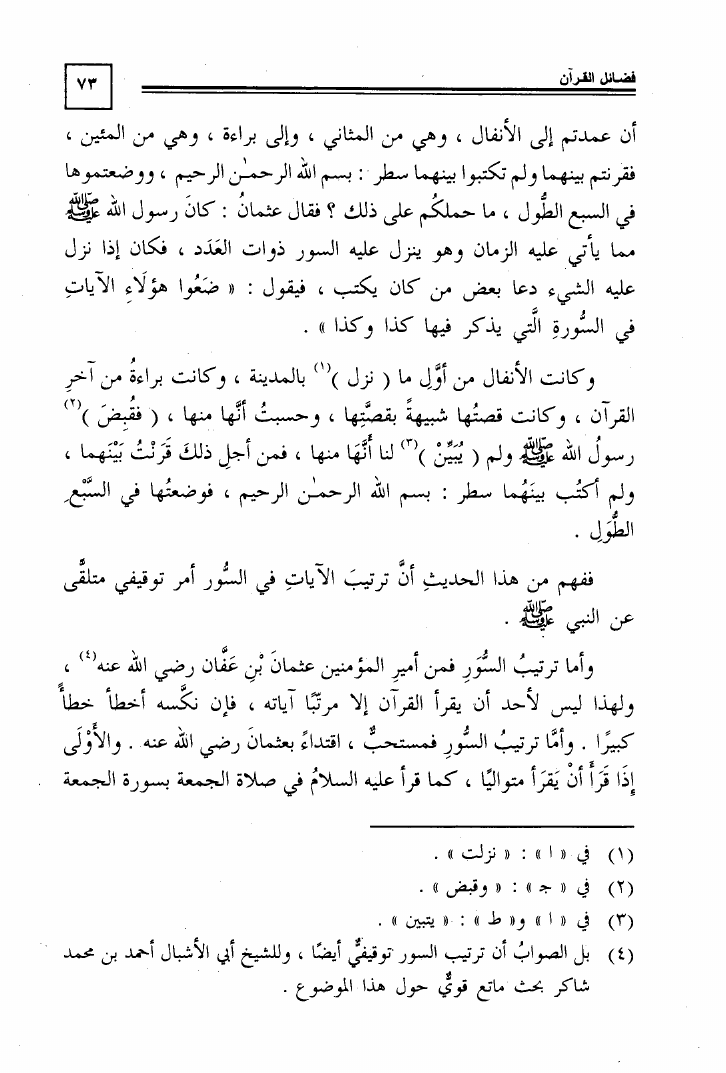 فضائل القرآن
٧٣
أن عمدتم إلى الأنفال ، وهي من المثاني ، وإلى براءة ، وهي من المئين ،
فقرنتم بينهما ولم تكتبوا بينهما سطر : بسم الله الرحمـٰن الرحيم ، ووضعتموها
في السبع الطُّول ، ما حملكُم على ذلك ؟ فقال عثمانُ : كانَ رسول الله ﷺ
مما يأتي عليه الزمان وهو ينزل عليه السور ذوات العَدَد ، فكان إذا نزل
عليه الشيء دعا بعض من كان يكتب ، فيقول : « ضَعُوا هؤلَاءِ الآياتِ
في السُّورةِ الَّتي يذكر فيها كذا وكذا » .
وكانت الأنفال من أوَّلِ ما ( نزل )(١) بالمدينة ، وكانت براءةُ من آخرِ
القرآن ، وكانت قصتُها شبيهةً بقصَّتِها ، وحسبتُ أنَّها منها ، ( فقُبِضَ )(٢)
رسولُ الله ﷺ ولم ( يُبَيِّنْ )(٣) لنا أنَّهَا منها ، فمن أجلِ ذلكَ قَرَنْتُ بَيْنَهما ،
ولم أكتُب بينَهُما سطر : بسم الله الرحمـٰن الرحيم ، فوضعتُها في السَّبْعِ
الطُّوَلِ .
ففهم من هذا الحديثِ أنَّ ترتيبَ الآياتِ في السُّور أمر توقيفي متلقَّى
عن النبي ﷺ .
وأما ترتيبُ السُّوَرِ فمن أميرِ المؤمنين عثمانَ بْنِ عَفَّان رضي الله عنه(٤) ،
ولهذا ليس لأحد أن يقرأ القرآن إلا مرتّبًا آياته ، فإن نكَّسه أخطأ خطأً
كبيرًا . وأمَّا ترتيبُ السُّورِ فمستحبٌّ ، اقتداءً بعثمانَ رضي الله عنه . والأَوْلَى
إِذَا قَرَأَ أنْ يَقرَأ متواليًا ، كما قرأ عليه السلامُ في صلاة الجمعة بسورة الجمعة
(١) في « ا » : « نزلت » .
(٢) في « جـ » : « وقبض » .
(٣) في « ا » و« ط » : « يتبين » .
(٤) بل الصوابُ أن ترتيب السور توقيفيٌّ أيضًا ، وللشيخ أبي الأشبال أحمد بن محمد
شاكر بحث ماتع قويٌّ حول هذا الموضوع .